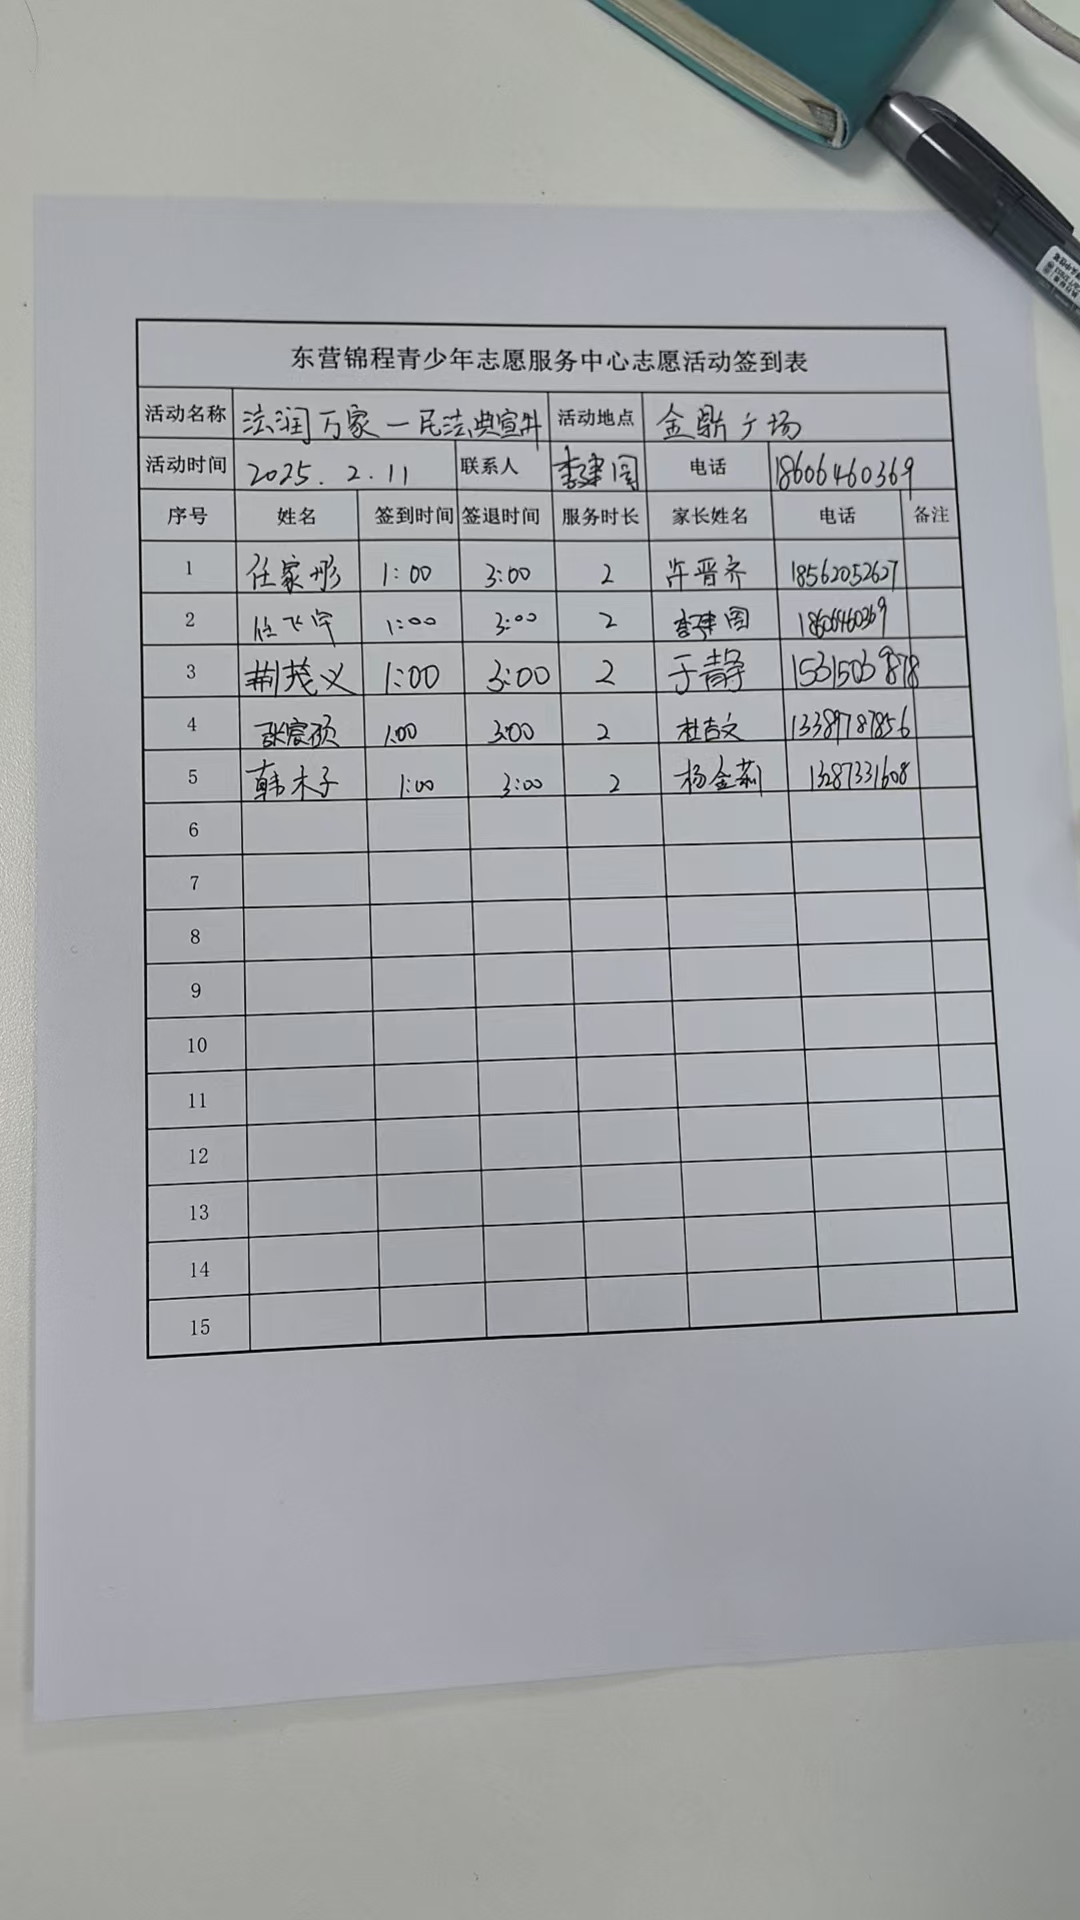 东营锦程青少年志愿服务中心志愿活动签到表
活动名称 法润万家一民法典宣件 活动地点 金鼎广场
活动时间 2025.2.11 联系人 李建国 电话 18606460369
序号 姓名 签到时间 签退时间 服务时长 家长姓名 电话 备注
1 任家彤 1:00 3:00 2 许晋齐 18562052627
2 任飞宇 1:00 3:00 2 李建国 18606460369
3 荆茂义 1:00 3:00 2 于静 15315039878
4 张宸硕 1:00 3:00 2 杜吉文 13389787856
5 韩木子 1:00 3:00 2 杨金莉 13287331608
6
7
8
9
10
11
12
13
14
15